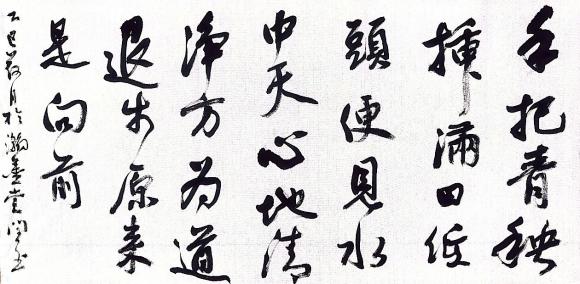 手把青秧
插滿田低
頭便見水
中天心地清
净方为道
退步原来
是向前
乙巳荷月於瀚墨堂